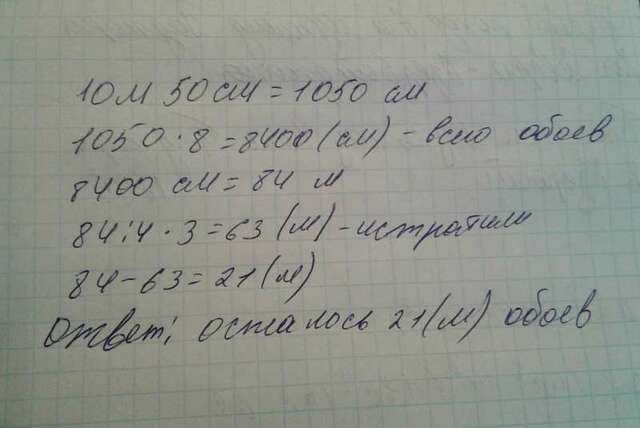 10 м 50 см = 1050 см
1050 · 8 = 8400 (см) - всего обоев
8400 см = 84 м
84 : 4 · 3 = 63 (м) - истратили
84 - 63 = 21 (м)
Ответ: осталось 21 (м) обоев